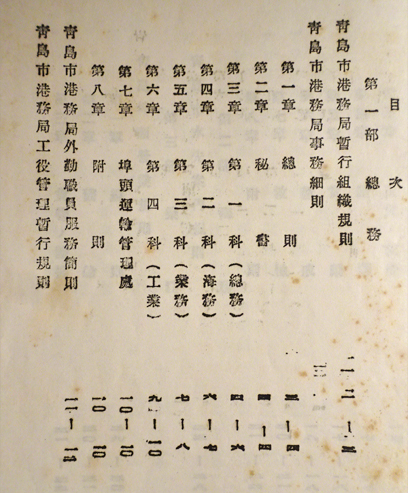 目次
第一部 總務
青島市港務局暫行組織規則
青島市港務局事務細則
第一章 總則
第二章 秘書
第三章 第一科（總務） 四
第四章 第二科（海務） 六—七
第五章 第三科（業務） 七—八
第六章 第四科（工業） 九—一〇
第七章 埠頭運輸管理處 一〇—一〇
第八章 附則 一〇
青島市港務局外勤職員服務簡則
青島市港務局工役管理暫行規則